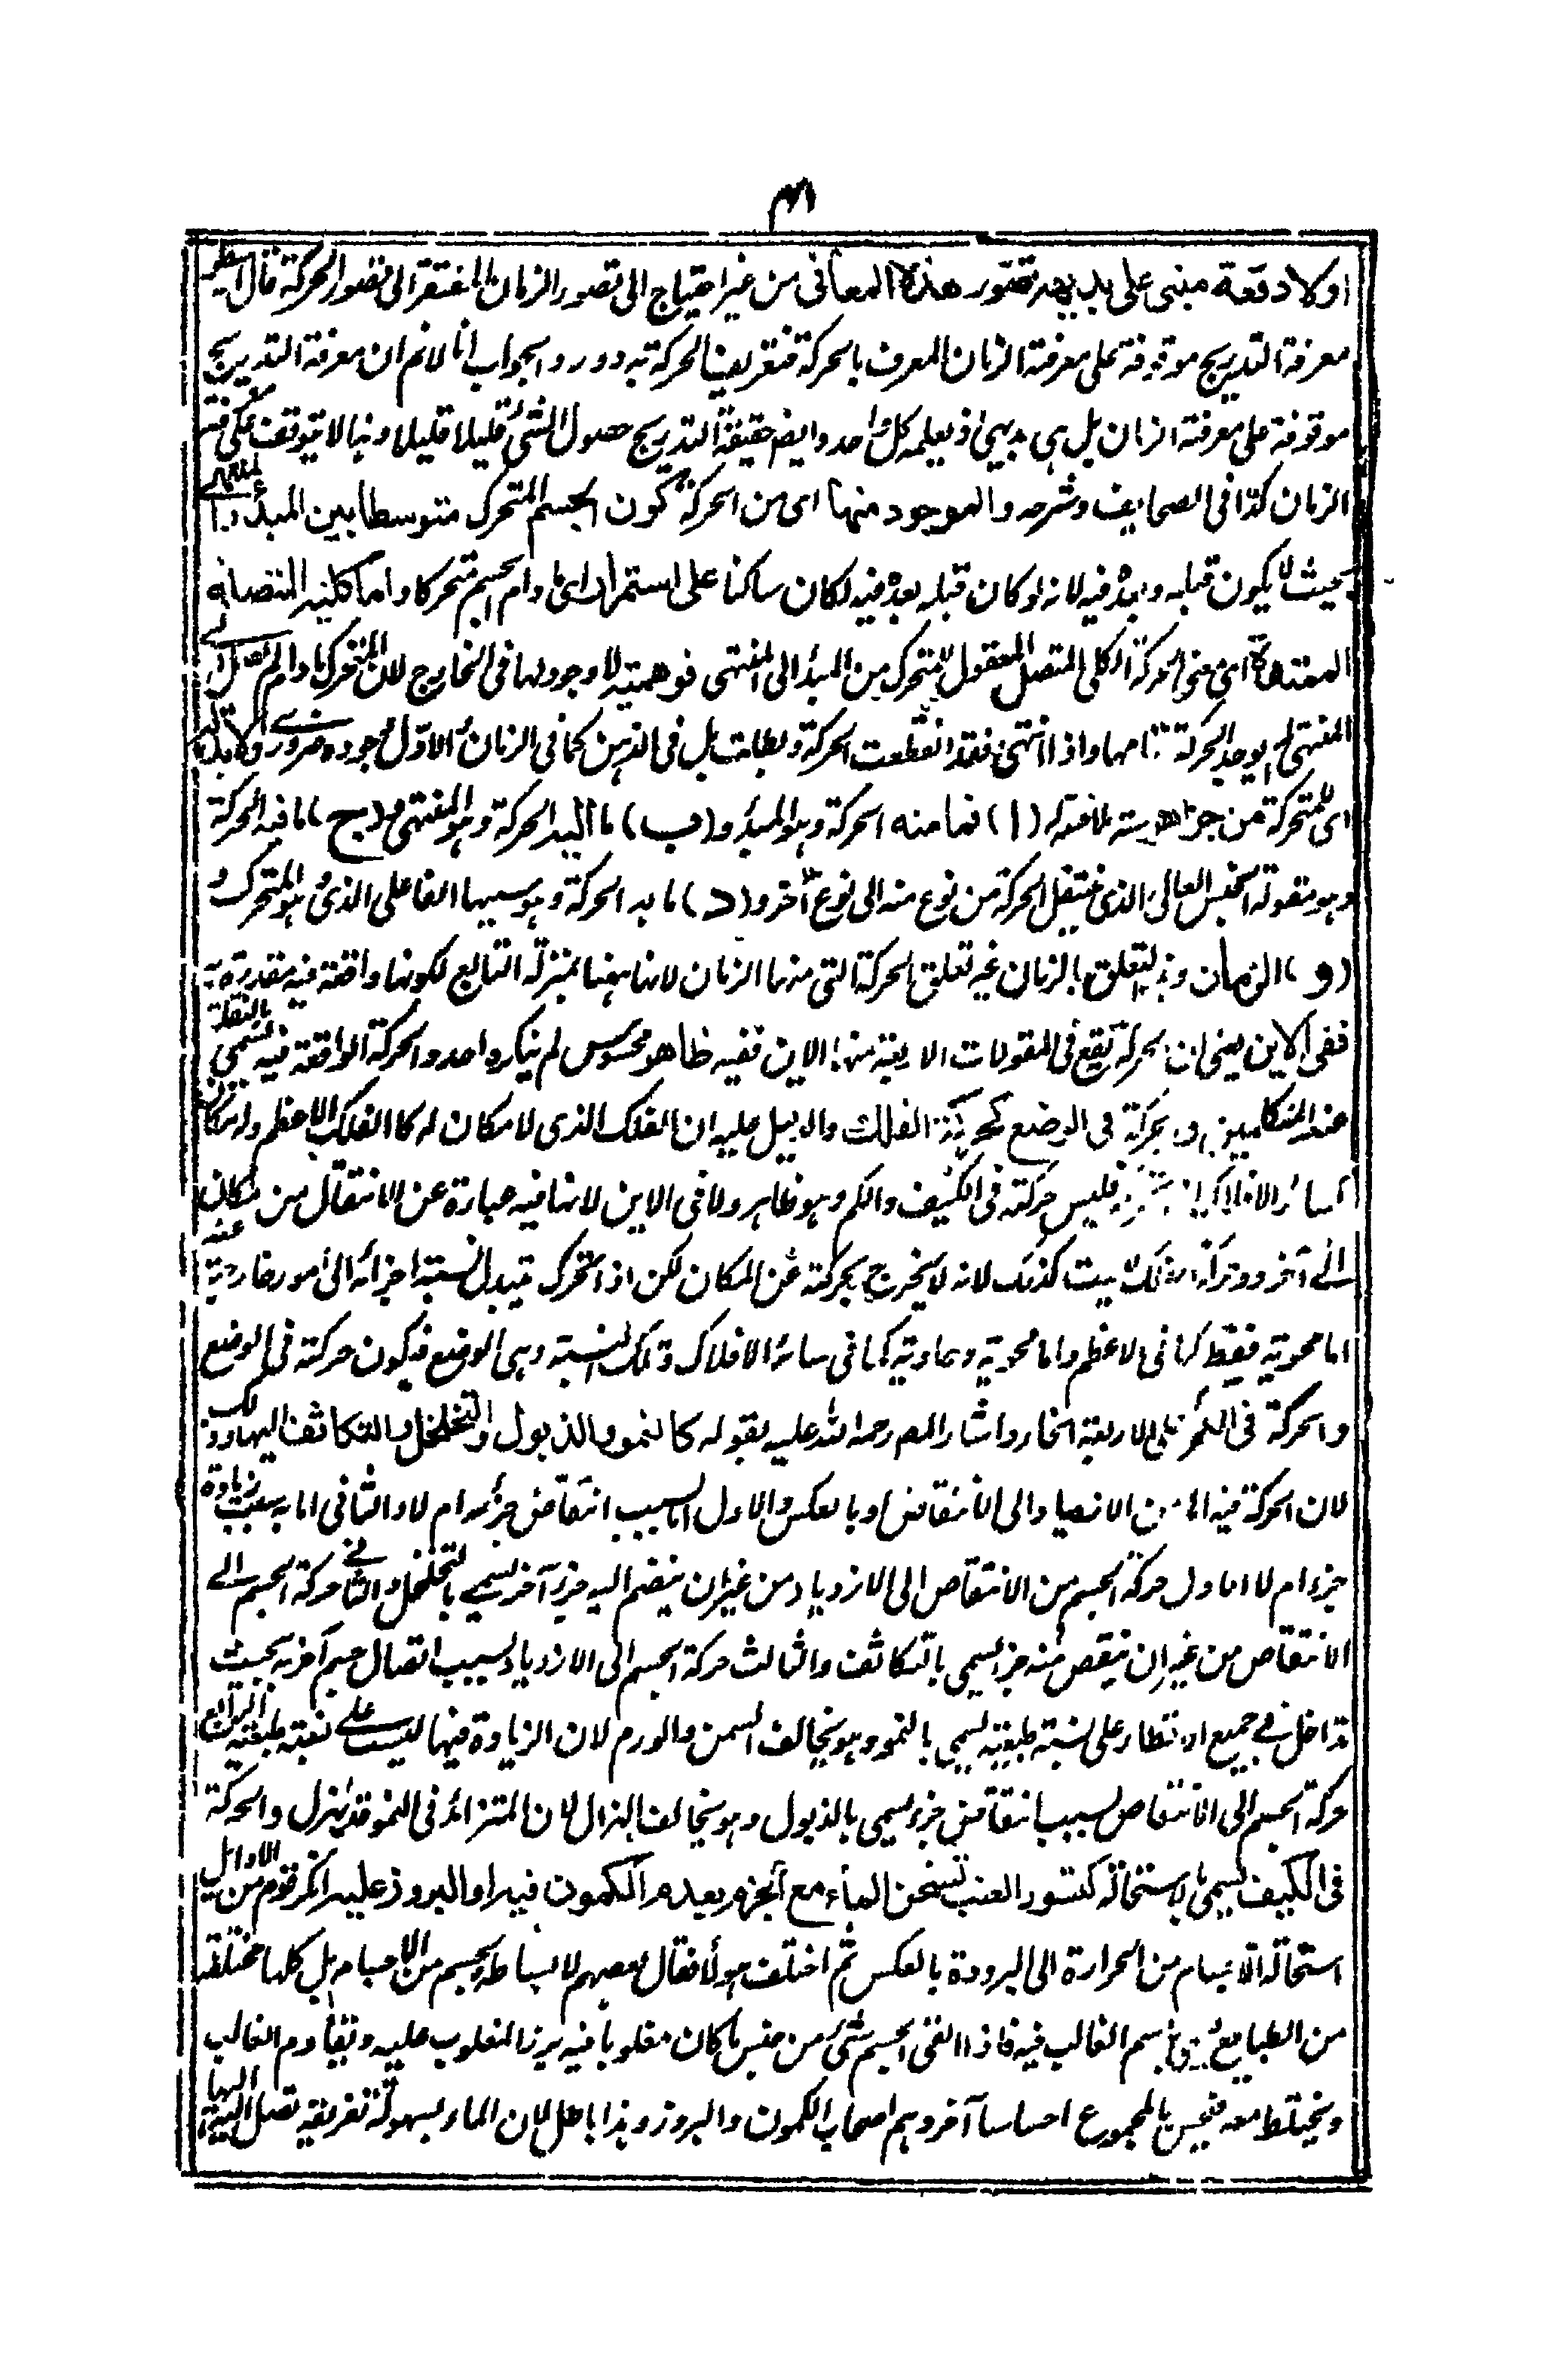 او لا دفعة مبنى على بديهة تصور هذه المعانى من غير احتياج الى تصور الزمان المفتقر الى تصور الحركة قال
معرفة التدريج موقوفة على معرفة الزمان المعرف بالحركة فتعريف الحركة به دور والجواب انا لا نم ان معرفة التدريج
موقوفة على معرفة الزمان بل هى بديهى اذ يعلمه كل واحد وايضا حقيقة التدريج حصول الشئ قليلا قليلا وذا لا يتوقف على معرفة
الزمان كذا فى الصحايف وشرحه والموجود منها اى من الحركة كون الجسم المتحرك متوسطا بين المبدأ والمنتهى
بحيث لا يكون قبله وبعده فيه لانه لو كان قبله بعده فيه لكان ساكنا على استمرار اى ما دام الجسم متحركا واما كليته المتصلة
الممتدة اى معنى الحركة الكلى المتصل المعقول للمتحرك من المبدأ الى المنتهى فوهمية لا وجود لها فى الخارج لان المتحرك ما دام لم يصل الى
المنتهى لم يوجد الحركة بتمامها واذا انتهى فقد انقطعت الحركة وبطلت بل فى الذهن كما فى الزمان الاول وجوده ضرورى ولا بد لها
اى للحركة من ستة (ا) فما منه الحركة وهو المبدأ و(ب) ما اليه الحركة وهو المنتهى و(ج) ما فيه الحركة
وهو مقولة الجنس العالى الذى ينتقل الحركة من نوع منه الى نوع آخر و(د) ما به الحركة وهو سببها الفاعلى الذى هو المتحرك و
(و) الزمان وذا التعلق بالزمان غير تعلق الحركة التى منها الزمان لانها ههنا بمنزلة التابع لكونها واقعة فيه مقدرة به
ففى الاين يعنى ان الحركة تقع فى المقولات الاربعة منها الاين ففيه ظاهر محسوس لم ينكره احد والحركة الواقعة فيه تسمى بالنقلة
عند المتكلمين والحركة فى الوضع كحركة الفلك والدليل عليه ان الفلك الذى لا مكان له كالفلك الاعظم وله مكان
كسائر الافلاك فليس حركته فى الكيف والكم وهو ظاهر ولا فى الاين لانها فيه عبارة عن الانتقال من مكان
الى آخر وحركة الفلك ليست كذلك لانه لا يخرج بحركته عن المكان لكن اذا تحرك تتبدل نسبة اجزائه الى امور خارجة عنه
اما محوية فقط كما فى الاعظم واما محوية وحاوية كما فى سائر الافلاك وتلك النسبة وهى الوضع فيكون حركته فى الوضع
والحركة فى الكم على الاربعة انحاء واشار المص رحمة الله عليه بقوله كالنمو والذبول والتخلخل والتكاثف اليها وذلك
لان الحركة فيه اما من الازدياد الى الانتقاص او بالعكس والاول اما بسبب انتقاص جزء ام لا والثانى اما بسبب زيادة
جزء ام لا اما الاول حركة الجسم من الانتقاص الى الازدياد من غير ان ينضم اليه جزء آخر يسمى بالتخلخل والثانى حركة الجسم الى
الانتقاص من غير ان ينقص منه جزء يسمى بالتكاثف والثالث حركة الجسم الى الازدياد بسبب اتصال جسم آخر به بحيث
تداخل فى جميع الاقطار على نسبة طبيعية يسمى بالنمو وهو يخالف السمن والورم لان الزيادة فيها ليست على نسبة طبيعية الرابع
حركة الجسم الى الانتقاص بسبب انتقاص جزء يسمى بالذبول وهو يخالف الهزال لان المتزائد فى النمو قد يهزل والحركة
فى الكيف يسمى بالاستحالة كتسود العنب وتسخن الماء مع الجزم بعدم الكمون فيه او البروز عليه انكر قوم من الاوائل
استحالة الاجسام من الحرارة الى البرودة بالعكس ثم اختلف هولا فقال بعضهم لا بساطة لجسم من الاجسام بل كلها مختلطة
من الطبايع يسمى باسم الغالب فيه فاذا لقى الجسم شئ من جنس ما كان مغلوبا فيه يبرز المغلوب عليه ويقاوم الغالب
ويختلط معه فيحس بالمجموع احساسا آخر وهم اصحاب الكمون والبروز وهذا باطل لان الماء بسهولة تفريقه تصل اليه